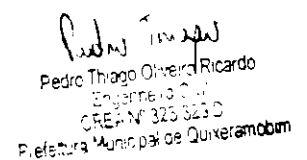 Pedro Thiago Oliveira Ricardo
Engenheiro Civil
CREA Nº 323 323 D
Prefeitura Municipal de Quixeramobim